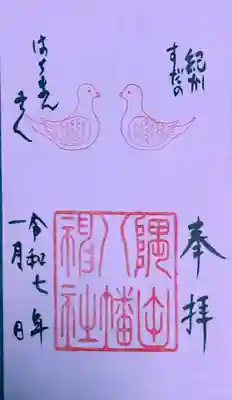 奉拝
紀州
すだの
はちまん
さく
隅田
八幡
神社
令和七年
一月 日